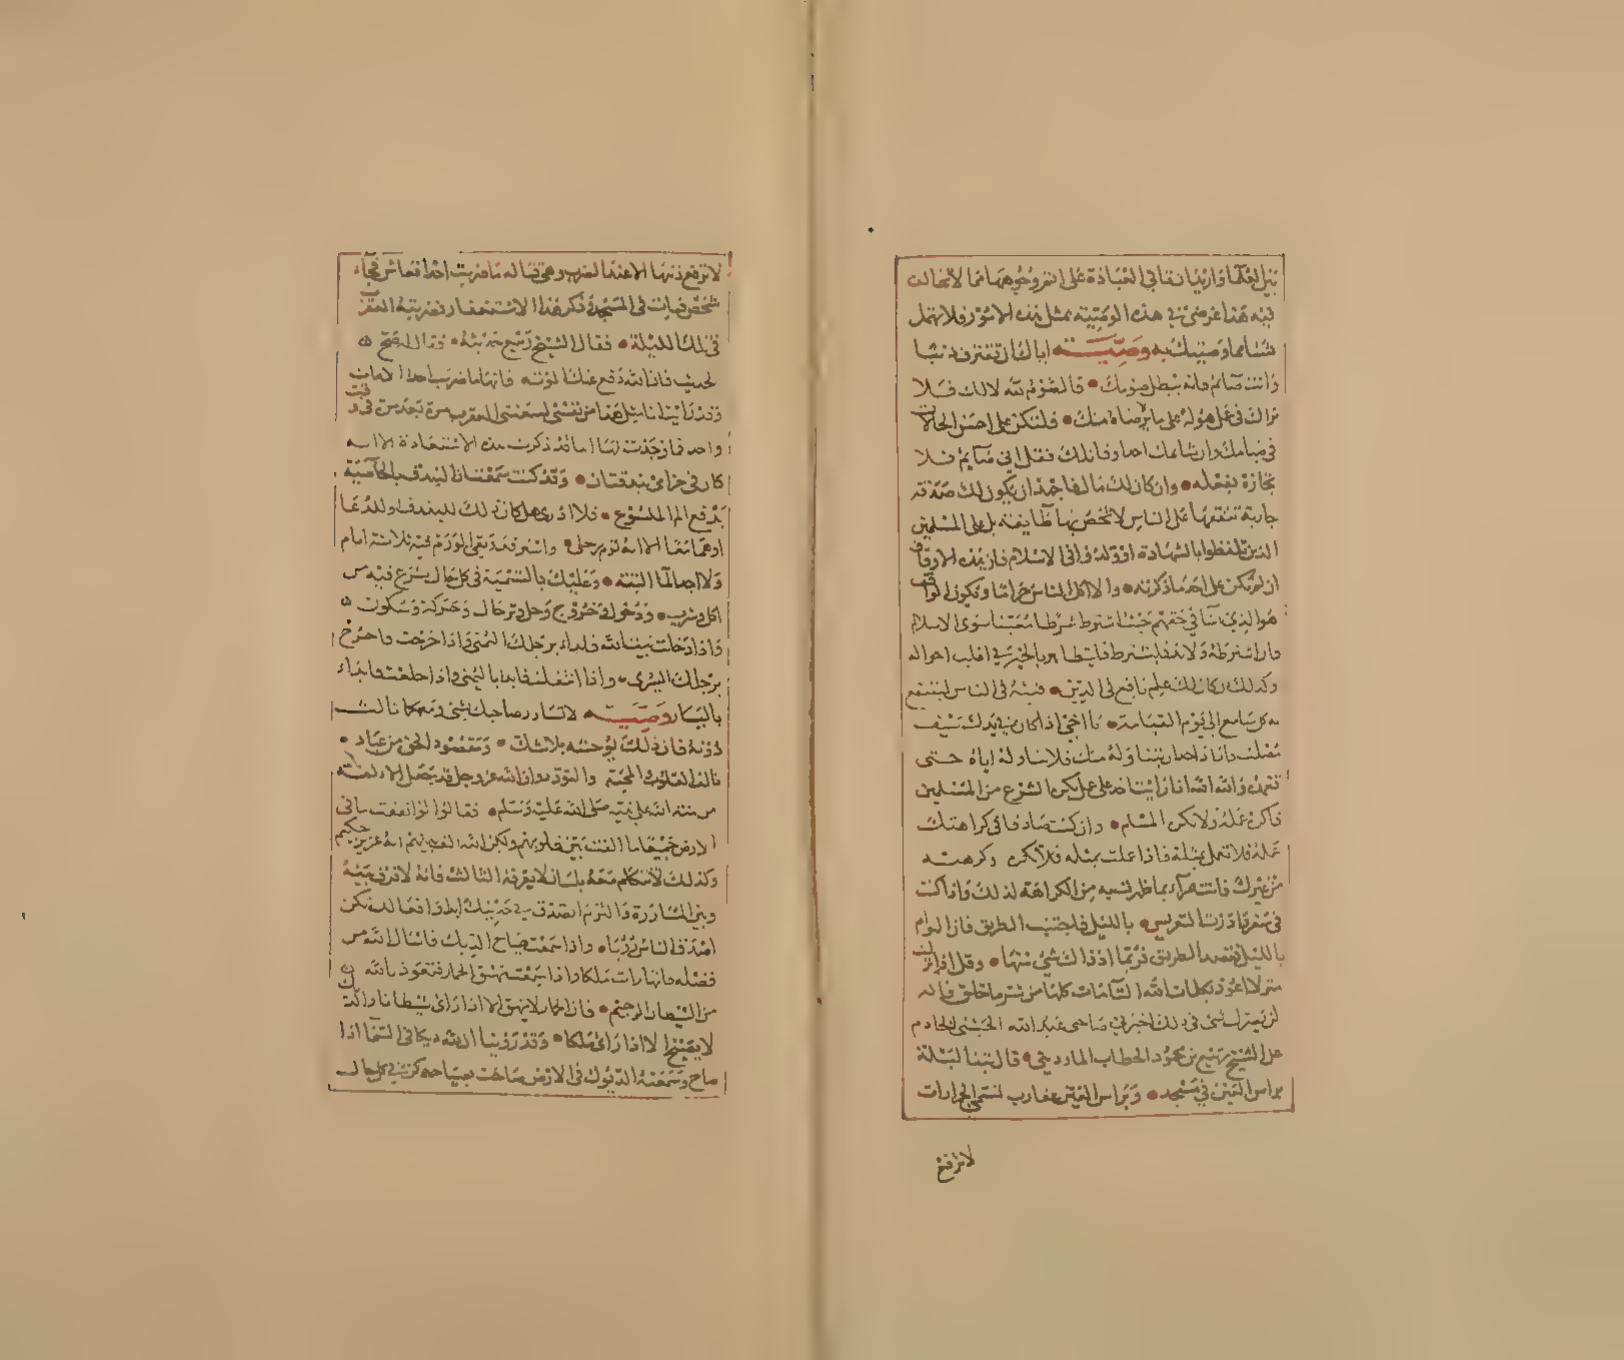 بين العلما وارتباطنا في العبادة على النور وجوهها مما لا تخالف
فيه هذا غرضي في هذه الوصية بمثل هذه الامور فلا تهمل
شيئا مما وصيتك به وصيــة اياك ان تغترف ذنبا
وانت صائم فانه يبطل صومك قال الصوم لله لا لك فلا
يراك في عمل هو له على ما لا يرضاه منك فلتكن على احسن الحالات
في صيامك وان شاتمك احد او قاتلك فقل اني صائم فلا
تجازه بفعله وان كان لك مال فاجهد ان يكون لك صدقة
جارية تنفعها على الناس لا تخص بها طايفة بل على المسلمين
الذين تلفظوا بالشهادة او ولدوا في الاسلام فان هذه الاوقاف
ان لم تكن على احد ما ذكرته والا اكل الناس حراما وتكون الواقف
هو الذي اسا في حقهم حيث اشترط شرطا معينا سوى الاسلام
فان اشترطه ولا بد فليشترط فيتظاهر بالخير في اغلب احواله
وكذلك ان كان لك علم نافع في الدين فبثه في الناس لينتفع
به كل سامع الى يوم القيامة يا اخي اذا كان في يدك سيف
مصلت واراد احد ان يتناوله منك فلا تناوله اياه حتى
تغمده والله الله اذا رايت احدا على عمل يكره الشرع من المسلمين
فاكره عمله ولا تكره المسلم وان كنت صادقا في كراهتك
عمله فلا تعمل بمثله فاذا عملت بمثله فلا تكره وكرهته
من غيرك فانت مرآء بما ظهر فيه من الكراهة لذلك واذا كنت
في سفر واردت التعريس بالليل فاجتنب الطريق فان الهوام
بالليل تقصد الطريق فربما اذتك شيء منها وقل اذا نزلت
منزلا اعوذ بكلمات الله التامات كلها من شر ما خلق فانه
لن يضرك شيء في ذلك اخبرني صاحبي عبد الله الحبشي الخادم
عن الشيخ ربيع بن محمود الحطاب المارديني قال بتنا ليلة
براس العين في مسجد وبراس العين عقارب تسمى الجرارات
لا ترفع
لا ترفع ذنبها الا عند الضرب وهي قتالة ما ضربت احدا فعاش فجآء
شخص فبات في المسجد وذكر هذا الاستغفار فضربته العقرب
في تلك الليلة فقال الشيخ ربيع حديثه فقال له صح
الحديث فان الله دفع عنك الموت فانها ما ضربت احدا الا مات
وقد رايت انا مثل هذا من نفسي لسعتني العقرب مرة بعد مرة في وقت
واحد فما وجدت لها الما وقد ذكرت هذه الاستعاذة الا انه
كان في حزامي بندقتان وقد كنت سمعت ان البندق بالخاصية
يدفع الم الملسوع فلا ادري هل كان ذلك للبندق او للدعا
او هما معا الا انه تورم رجلي واستمر فقد بقي الورم فيه ثلاثة ايام
ولا اجد الما البتة وعليك بالتسمية في كل حال يشرع فيه من
اكل وشرب ودخول وخروج وحل وترحال وحركة وسكون
واذا دخلت بيت الله فابداء برجلك اليمنى واذا خرجت فاخرج
برجلك اليسرى واذا انتعلت فابدا باليمنى واذا خلعت فابداء
باليسار وصيــة لا تسارر صاحبك بشي ومعكما ثالث
دونه فان ذلك يوحشه بلا شك ومقصود الحق من عباده
تالف القلوب والمحبة والتودد وان الله عز وجل قد جعل الالفة
من منة الله على نبيه صلى الله عليه وسلم فقال لو انفقت ما في
الارض جميعا ما الفت بين قلوبهم ولكن الله الف بينهم انه عزيز حكيم
وكذلك لا تتكلم معه بلسان لا يعرفه الثالث فانه لا فرق بينه
وبين المساررة والتزم الصدق في حديثك ابدا وافعالك تكن
اصدق الناس رؤيا واذا سمعت صياح الديك فاسال الله من
فضله فانها رات ملكا واذا سمعت نهيق الحمار فتعوذ بالله
من الشيطان الرجيم فان الحمار لا ينهق الا اذا راى شيطانا والديك
لا يصيح الا اذا راى ملكا وقد روينا ان لله ديكا في السما اذا
صاح وسمعته الديوك في الارض صاحت بصياحه كن في كل حال